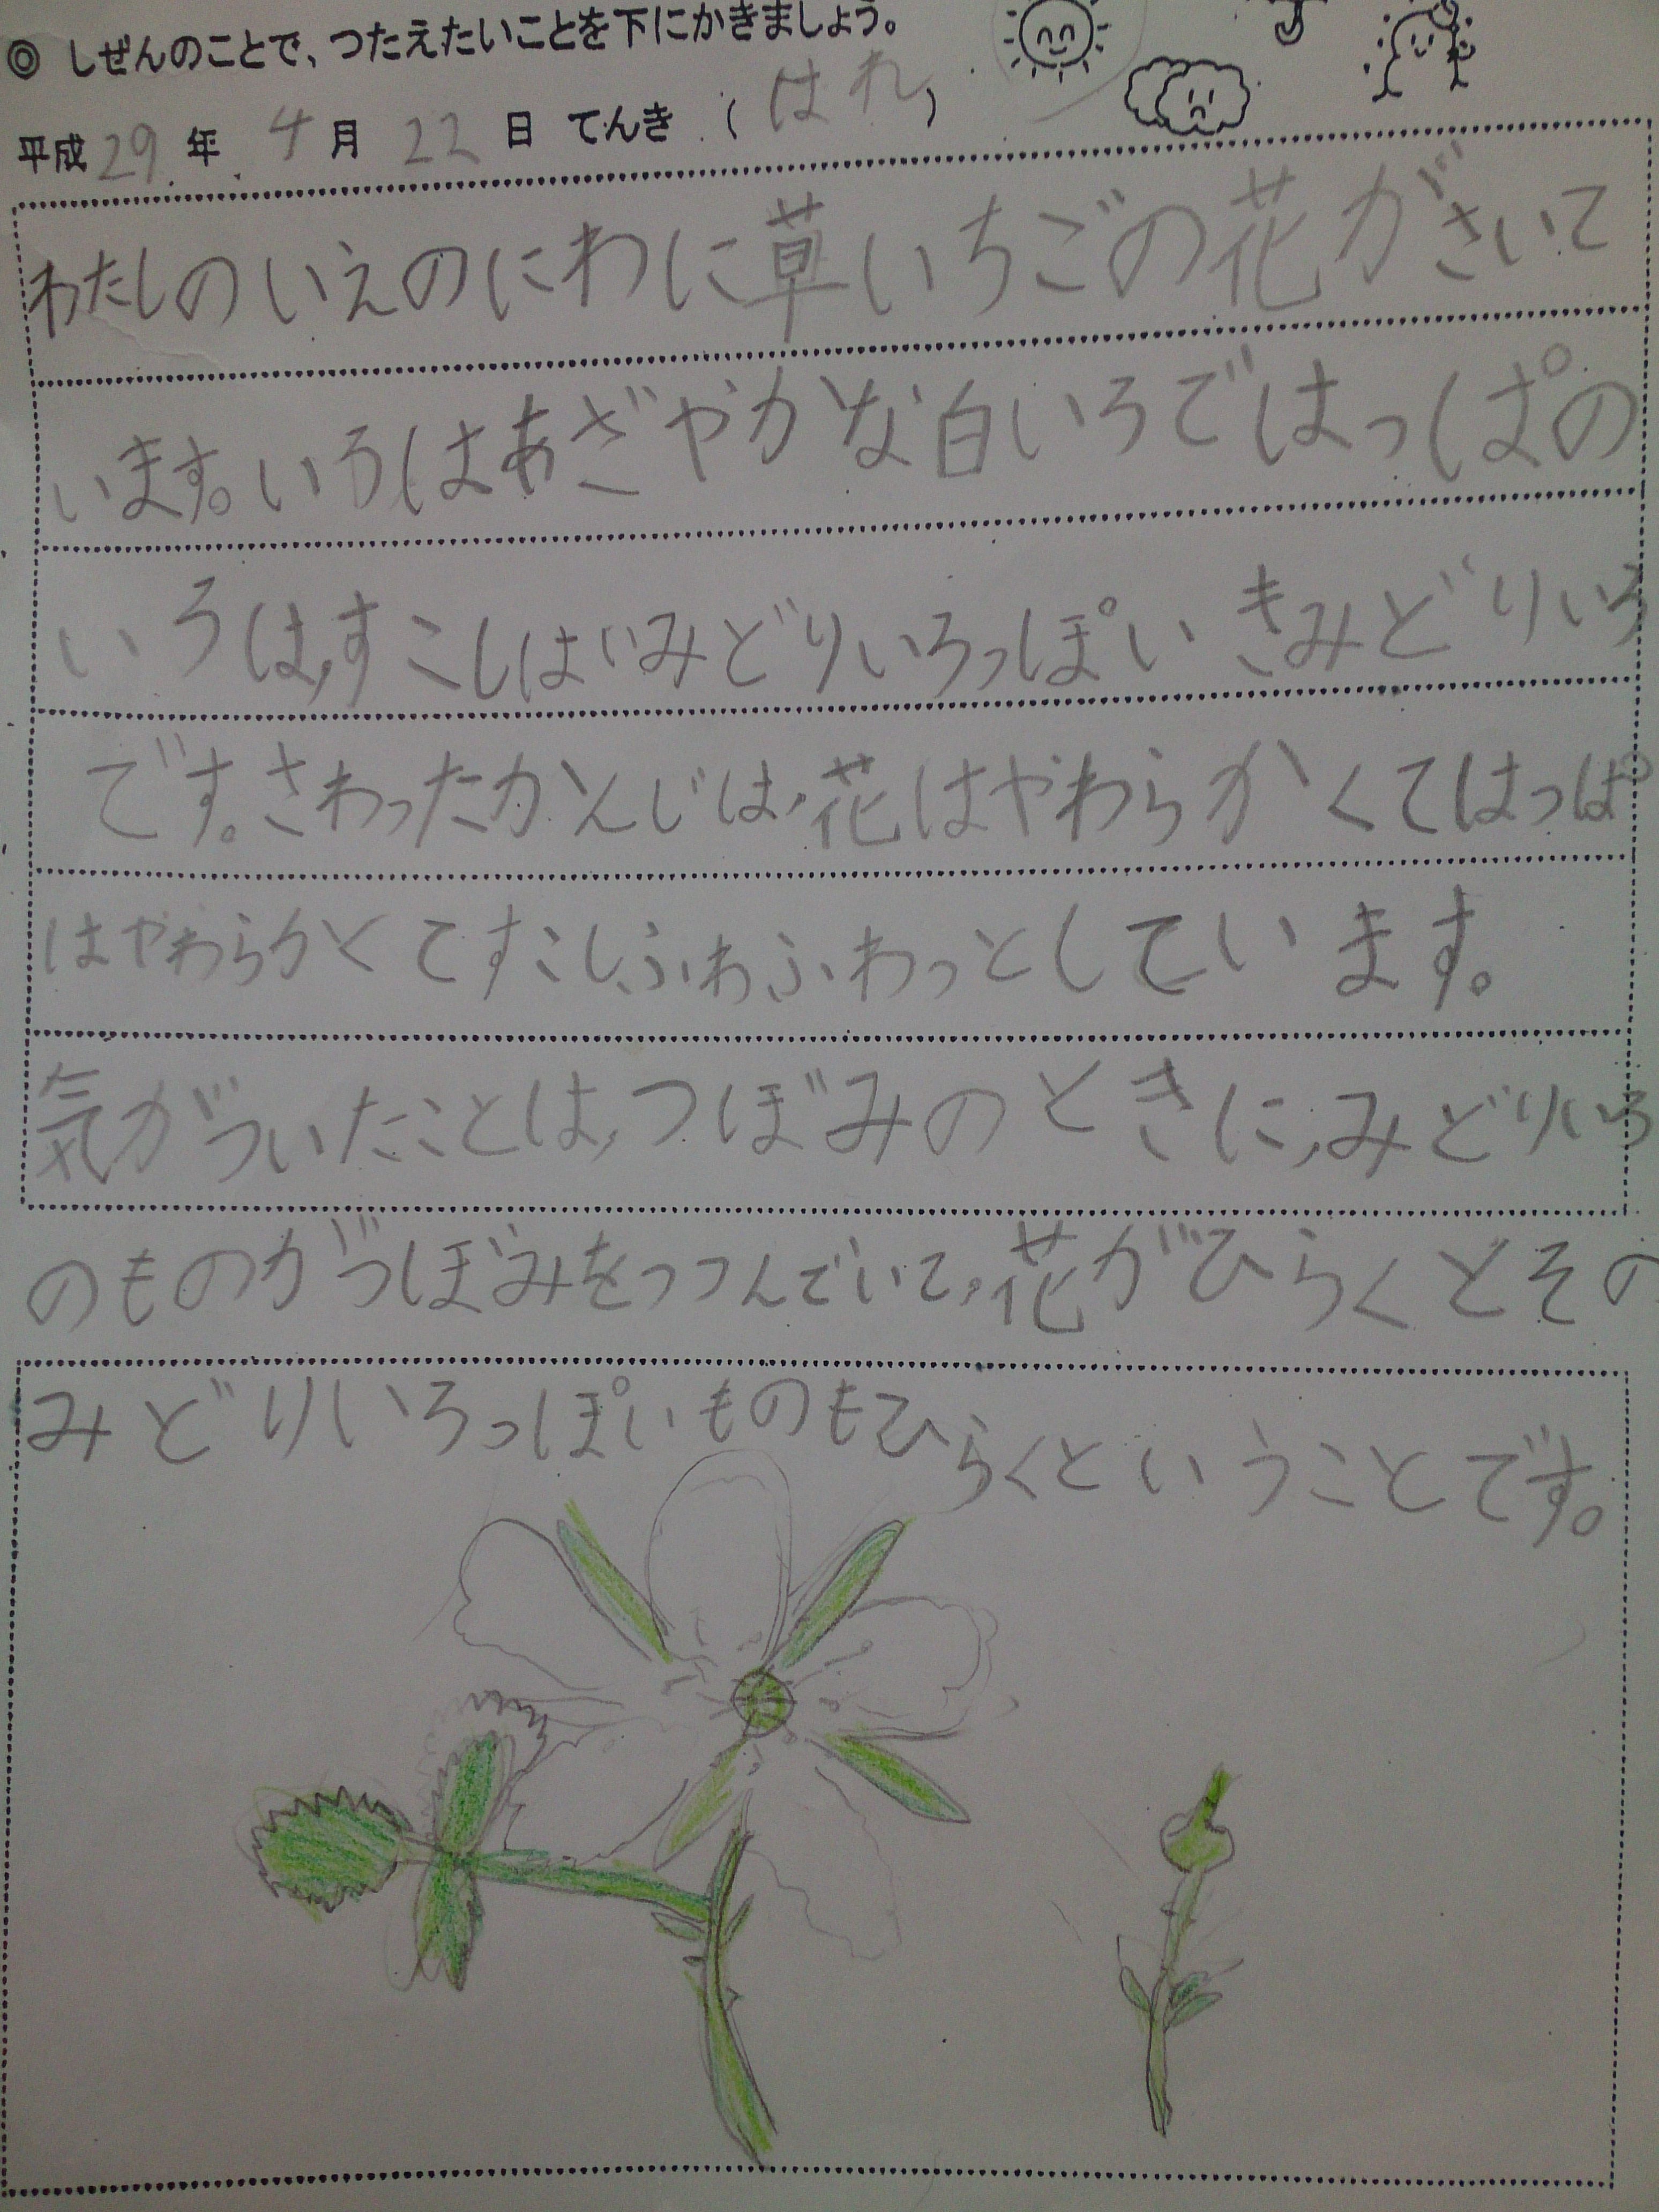 ◎ しぜんのことで、つたえたいことを下にかきましょう。
平成29年 4月 22日 てんき(はれ)
わたしのいえのにわに草いちごの花がさいて
います。いろはあざやかな白いろではっぱの
いろは、すこしはいみどりいろっぽいきみどりいろ
です。さわったかんじは、花はやわらかくてはっぱ
はやわらかくてすこしふわふわっとしています。
気がついたことは、つぼみのときに、みどりいろ
のものがつぼみをつつんでいて、花がひらくとその
みどりいろっぽいものもひらくということです。